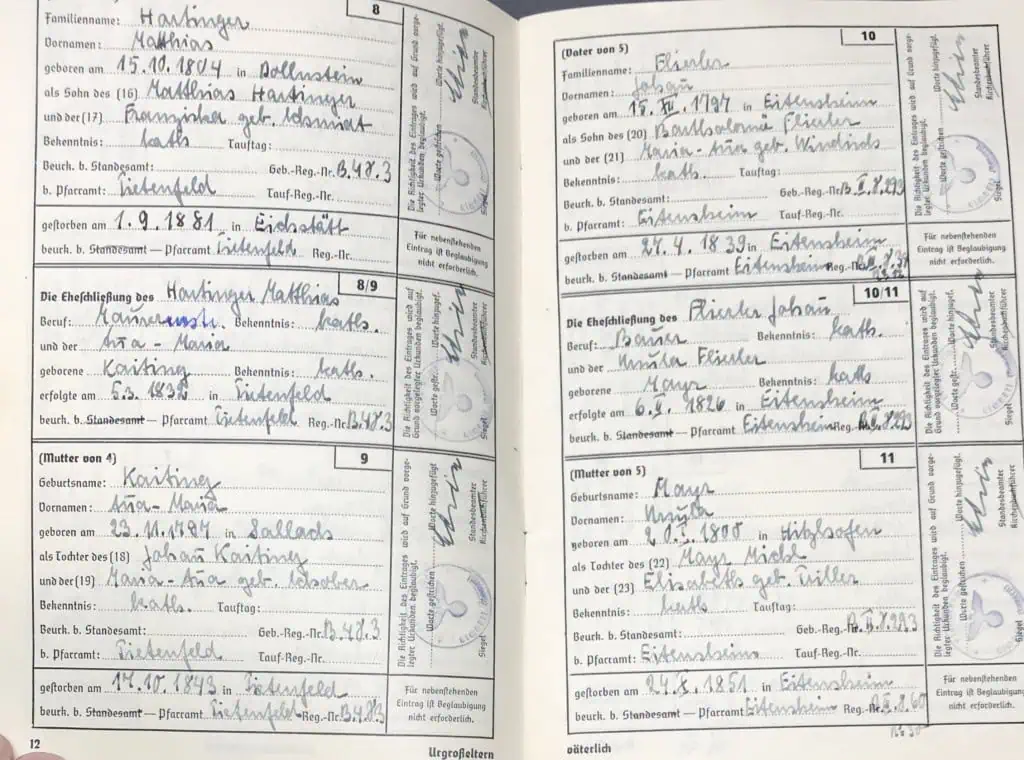 8
Familienname: Hartinger
Vornamen: Matthias
geboren am 15.10.1804 in Dollnstein
als Sohn des (16) Matthias Hartinger
und der (17) Franziska geb. Schmidt
Bekenntnis: kath. Tauftag:
Beurk. b. Standesamt: Geb.-Reg.-Nr. B.4S.3
b. Pfarramt: Tietenfeld Tauf-Reg.-Nr.
gestorben am 1.9.1881 in Eichstätt
beurk. b. Standesamt — Pfarramt Tietenfeld Reg.-Nr.
Die Richtigkeit des Eintrages wird auf Grund vorge-
legter Urkunden beglaubigt.
Worte gestrichen Worte hinzugefügt.
Standesbeamter
Kirchenbuchführer
Siegel
Für nebenstehenden
Eintrag ist Beglaubigung
nicht erforderlich.
8/9
Die Eheschließung des Hartinger Matthias
Beruf: Maurermstr. Bekenntnis: kath.
und der Anna - Maria
geborene Kaiting Bekenntnis: kath.
erfolgte am in Tietenfeld
beurk. b. Standesamt — Pfarramt Tietenfeld Reg.-Nr. B.4S.3
Die Richtigkeit des Eintrages wird auf
Grund vorgelegter Urkunden beglaubigt.
Worte gestr. Worte hinzugefügt.
Standesbeamter
Kirchenbuchführer
Siegel
(Mutter von 4)
9
Geburtsname: Kaiting
Vornamen: Anna - Maria
geboren am 23.11.1797 in Sallach
als Tochter des (18) Johann Kaiting
und der (19) Maria - Anna geb. Schober
Bekenntnis: kath. Tauftag:
Beurk. b. Standesamt: Geb.-Reg.-Nr. B.4S.3
b. Pfarramt: Tietenfeld Tauf-Reg.-Nr.
gestorben am 17.10.1843 in Tietenfeld
beurk. b. Standesamt — Pfarramt Tietenfeld Reg.-Nr. B.4S.3
Die Richtigkeit des Eintrages wird auf Grund vorge-
legter Urkunden beglaubigt.
Worte gestrichen Worte hinzugefügt
Standesbeamter
Kirchenbuchführer
Siegel
Für nebenstehenden
Eintrag ist Beglaubigung
nicht erforderlich.
12
Urgroßeltern
(Vater von 5)
10
Familienname: Flierler
Vornamen: Johann
geboren am 15.XII.1797 in Eitensheim
als Sohn des (20) Bartholomä Flierler
und der (21) Maria - Anna geb. Windisch
Bekenntnis: kath. Tauftag:
Beurk. b. Standesamt: Geb.-Reg.-Nr. B.II.S.293
b. Pfarramt: Eitensheim Tauf-Reg.-Nr.
gestorben am 27.4.1839 in Eitensheim
beurk. b. Standesamt — Pfarramt Eitensheim Reg.-Nr.
Die Richtigkeit des Eintrages wird auf Grund vorge-
legter Urkunden beglaubigt.
Worte gestrichen Worte hinzugefügt.
Standesbeamter
Kirchenbuchführer
Siegel
Für nebenstehenden
Eintrag ist Beglaubigung
nicht erforderlich.
10/11
Die Eheschließung des Flierler Johann
Beruf: Bauer Bekenntnis: kath.
und der Ursula Flierler
geborene Mayr Bekenntnis: kath
erfolgte am 6.II.1826 in Eitensheim
beurk. b. Standesamt — Pfarramt Eitensheim Reg.-Nr. B.II.S.293
Die Richtigkeit des Eintrages wird auf
Grund vorgelegter Urkunden beglaubigt.
Worte gestr. Worte hinzugefügt.
Standesbeamter
Kirchenbuchführer
Siegel
(Mutter von 5)
11
Geburtsname: Mayr
Vornamen: Ursula
geboren am in Hitzhofen
als Tochter des (22) Mayr Michl
und der (23) Elisabeth geb. Triller
Bekenntnis: kath Tauftag:
Beurk. b. Standesamt: Geb.-Reg.-Nr. B.II.S.293
b. Pfarramt: Eitensheim Tauf-Reg.-Nr.
gestorben am 24.X.1851 in Eitensheim
beurk. b. Standesamt — Pfarramt Eitensheim Reg.-Nr. B.II.S.60
Die Richtigkeit des Eintrages wird auf Grund vorge-
legter Urkunden beglaubigt.
Worte gestrichen Worte hinzugefügt
Standesbeamter
Kirchenbuchführer
Siegel
Für nebenstehenden
Eintrag ist Beglaubigung
nicht erforderlich.
väterlich